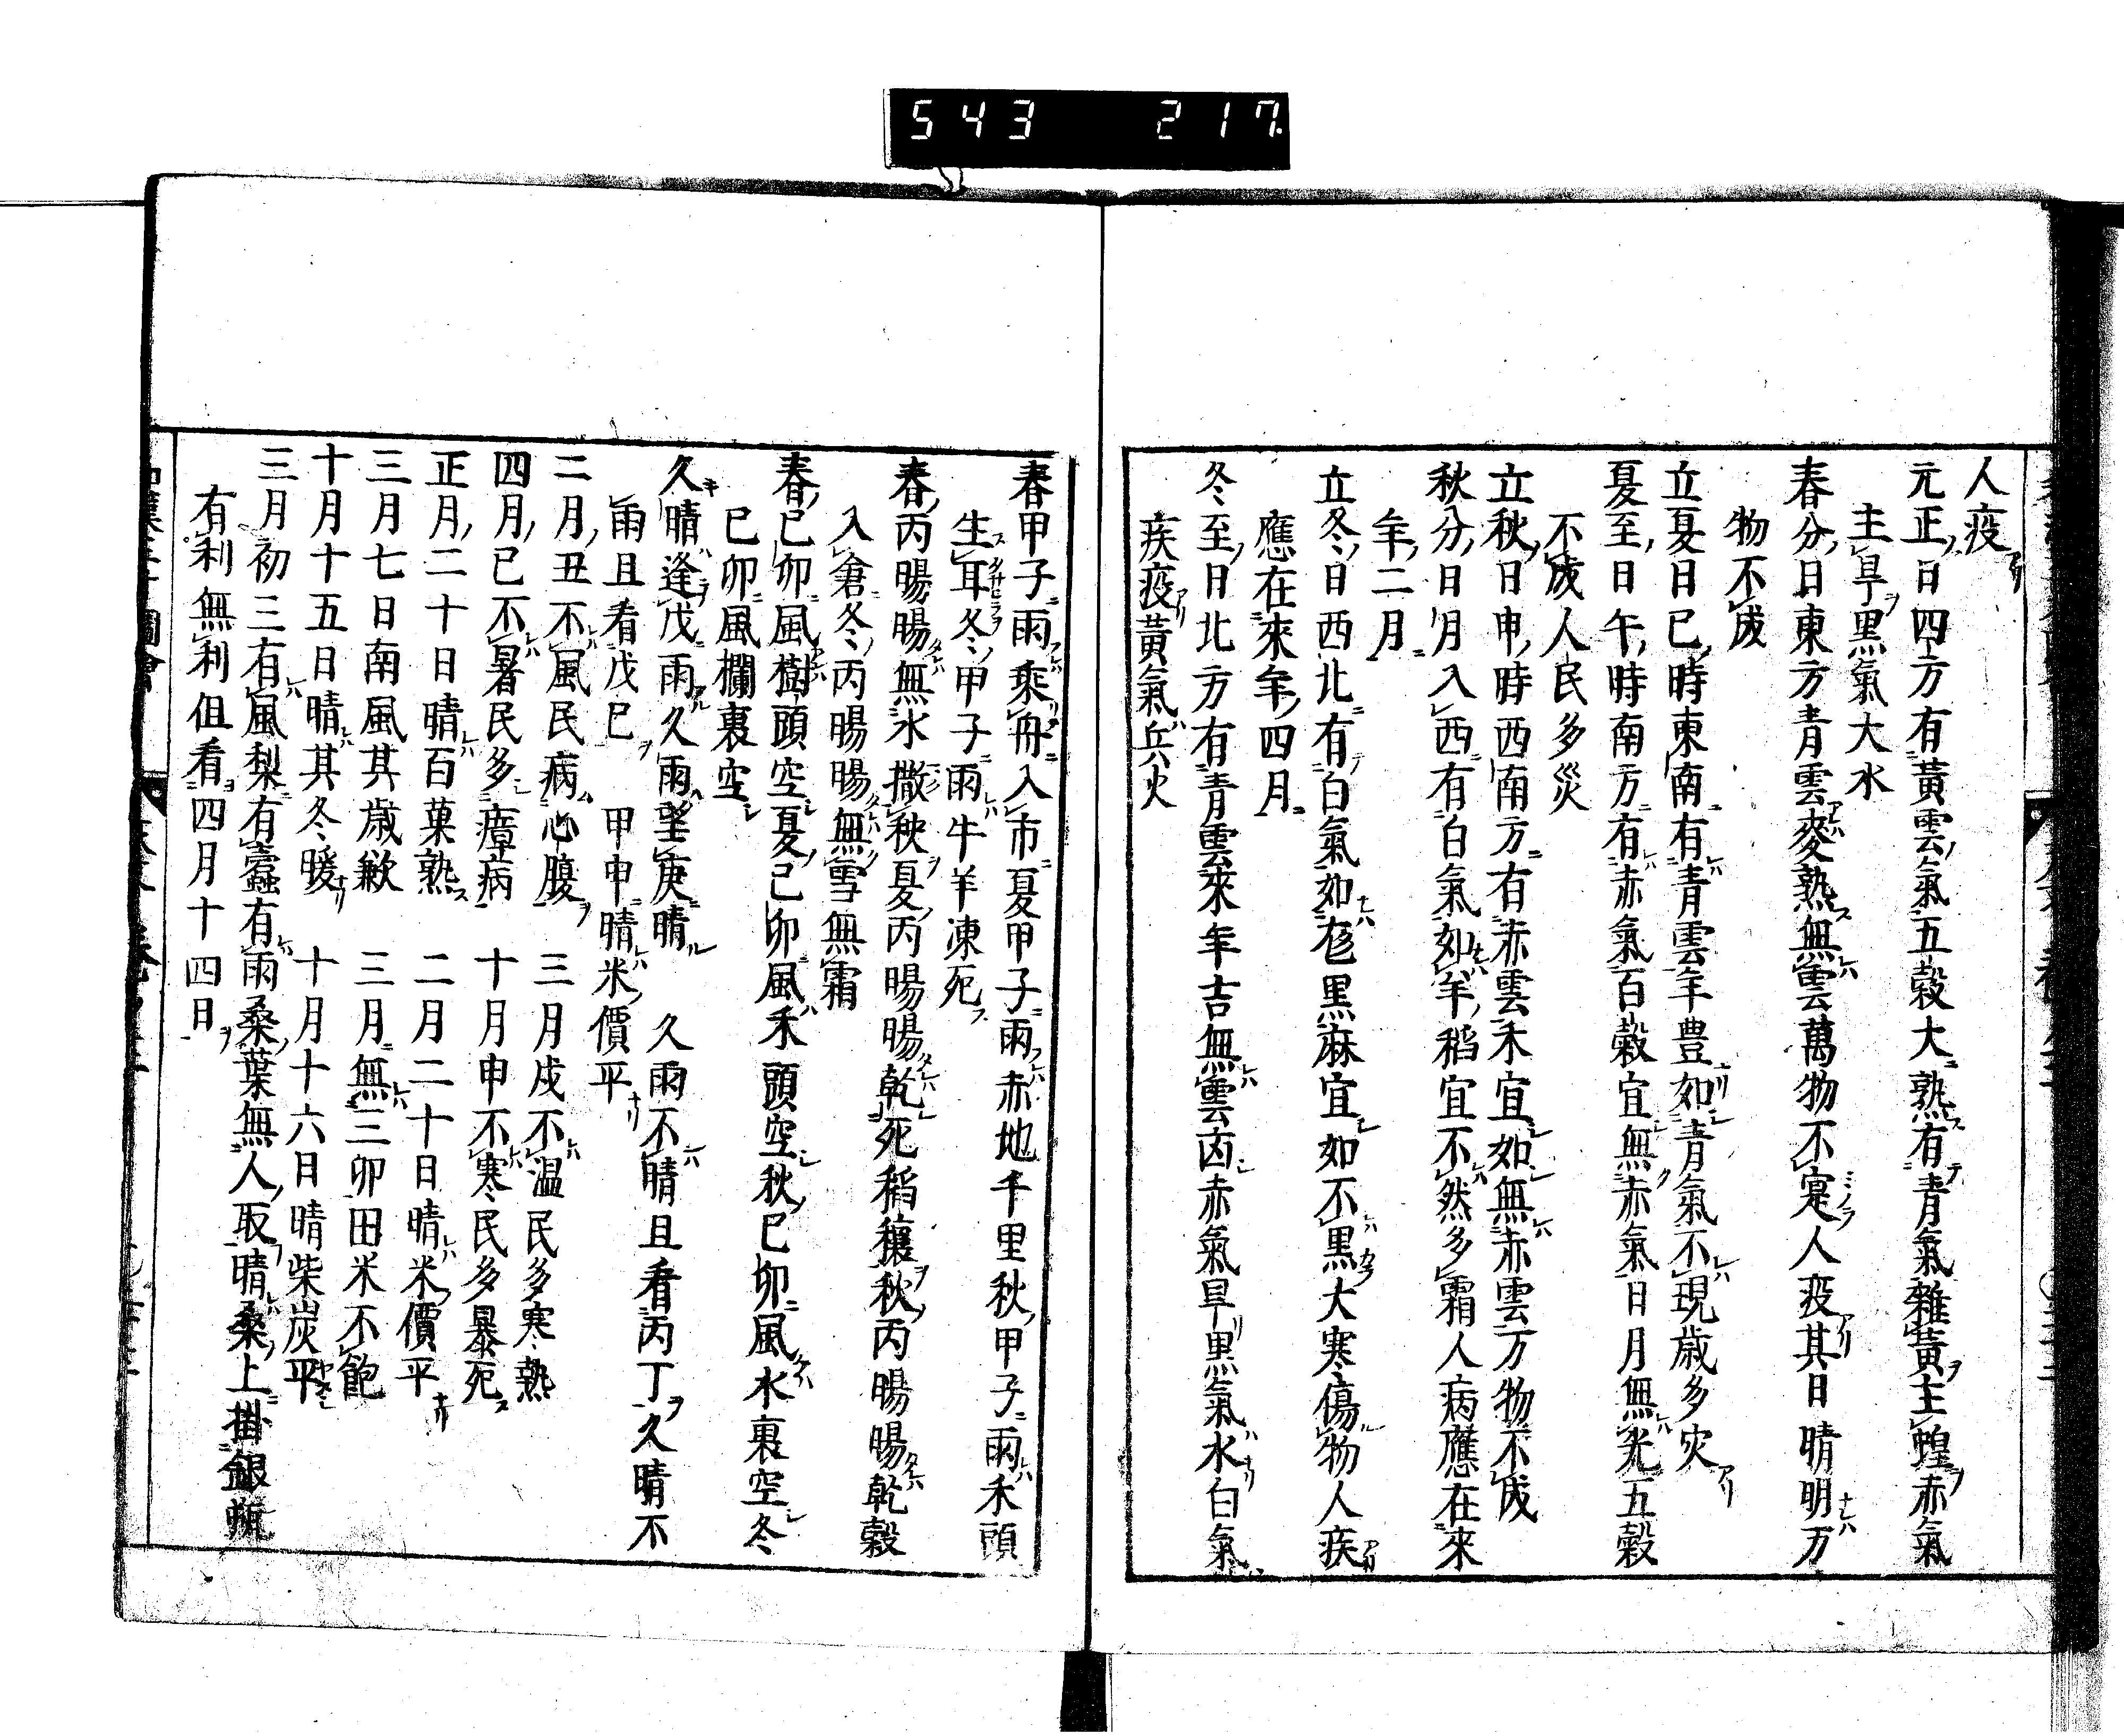 543 217
人疫
元正日四方有黃雲氣五穀大熟有青氣雜黃主蝗赤氣
主旱黑氣大水
春分日東方青雲麥熟無雲萬物不寔人疫其日晴明万
物不成
立夏日巳時東南有青雲年豊如青氣不現歳多灾
夏至日午時南方有赤氣百穀宜無赤氣日月無光五穀
不成人民多災
立秋日申時西南方有赤雲禾宜如無赤雲万物不成
秋分日月入酉有白氣如羊稻宜不然多霜人病應在來
年二月
立冬日西北有白氣如卮黒麻宜如不黒大寒傷物人疾
應在來年四月
冬至日北方有青雲來年吉無雲凶赤氣旱黒氣水白氣
疾疫黃氣兵火
春甲子雨乘舟入市夏甲子雨赤地千里秋甲子雨禾頭
生耳冬甲子雨牛羊凍死
春丙暘暘無水撒秧夏丙暘暘乾死稻穰秋丙暘暘乾穀
入倉冬丙暘暘無雪無霜
春己卯風樹頭空夏己卯風禾頭空秋己卯風水裏空冬
己卯風欄裏空
久晴逢戊雨久雨望庚晴 久雨不晴且看丙丁久晴不
雨且看戊己 甲申晴米價平
二月丑不風民病心腹 三月戌不温民多寒熱
四月巳不暑民多瘴病 十月申不寒民多暴死
正月二十日晴百菓熟 二月二十日晴米價平
三月七日南風其歳歉 三月無三卯田米不飽
十月十五日晴其冬暖 十月十六日晴柴炭平
三月初三有風梨有蠹有雨桑葉無人取晴桑上掛銀瓶
有利無利但看四月十四日